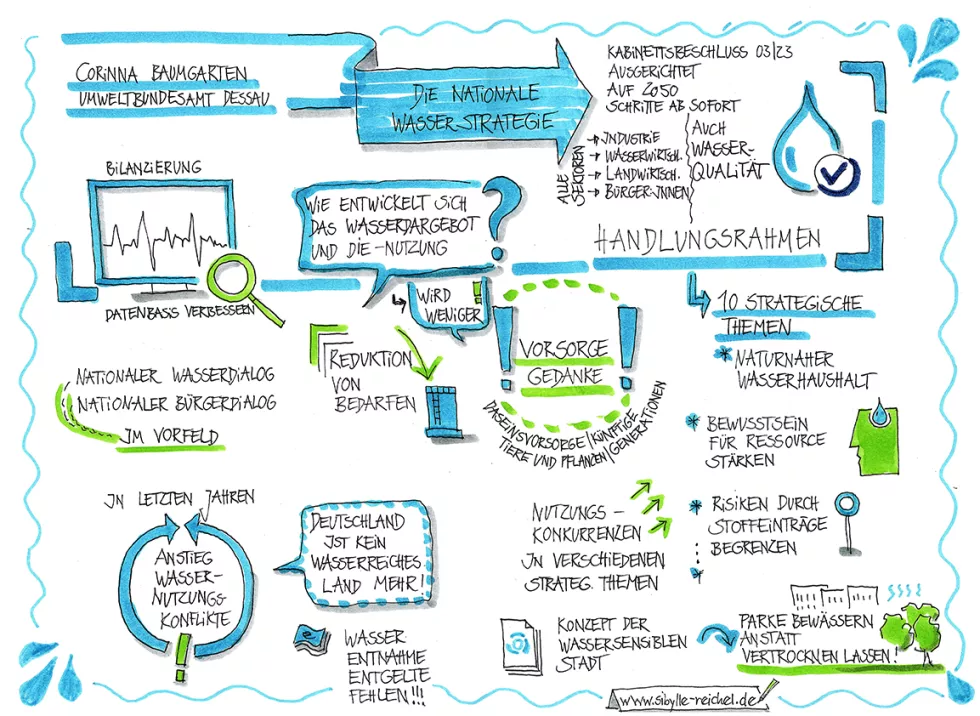 CORINNA BAUMGARTEN
UMWELTBUNDESAMT DESSAU
DIE NATIONALE
WASSERSTRATEGIE
KABINETTSBESCHLUSS 03/23
AUSGERICHTET
AUF 2050
SCHRITTE AB SOFORT
ALLE
SEKTOREN
→ INDUSTRIE
→ WASSERWIRTSCH.
→ LANDWIRTSCH.
→ BÜRGER:INNEN
AUCH
WASSER-
QUALITÄT
HANDLUNGSRAHMEN
BILANZIERUNG
DATENBASIS VERBESSERN
WIE ENTWICKELT SICH
DAS WASSERDARGEBOT
UND DIE -NUTZUNG
?
WIRD
WENIGER
!
REDUKTION
VON
BEDARFEN
! VORSORGE !
GEDANKE
DASEINSVORSORGE/KÜNFTIGE
TIERE UND PFLANZEN/GENERATIONEN
10 STRATEGISCHE
THEMEN
* NATURNAHER
WASSERHAUSHALT
* BEWUSSTSEIN
FÜR RESSOURCE
STÄRKEN
* RISIKEN DURCH
STOFFEINTRÄGE
BEGRENZEN
*
NATIONALER WASSERDIALOG
NATIONALER BÜRGERDIALOG
IM VORFELD
IN LETZTEN JAHREN
ANSTIEG
WASSER-
NUTZUNGS
KONFLIKTE
!
DEUTSCHLAND
IST KEIN
WASSERREICHES
LAND MEHR!
WASSER
ENTNAHME
ENTGELTE
FEHLEN!!!
NUTZUNGS-
KONKURRENZEN
IN VERSCHIEDENEN
STRATEG. THEMEN
KONZEPT DER
WASSERSENSIBLEN
STADT
PARKE BEWÄSSERN
ANSTATT
VERTROCKNEN LASSEN!
www.sibylle-reichel.de